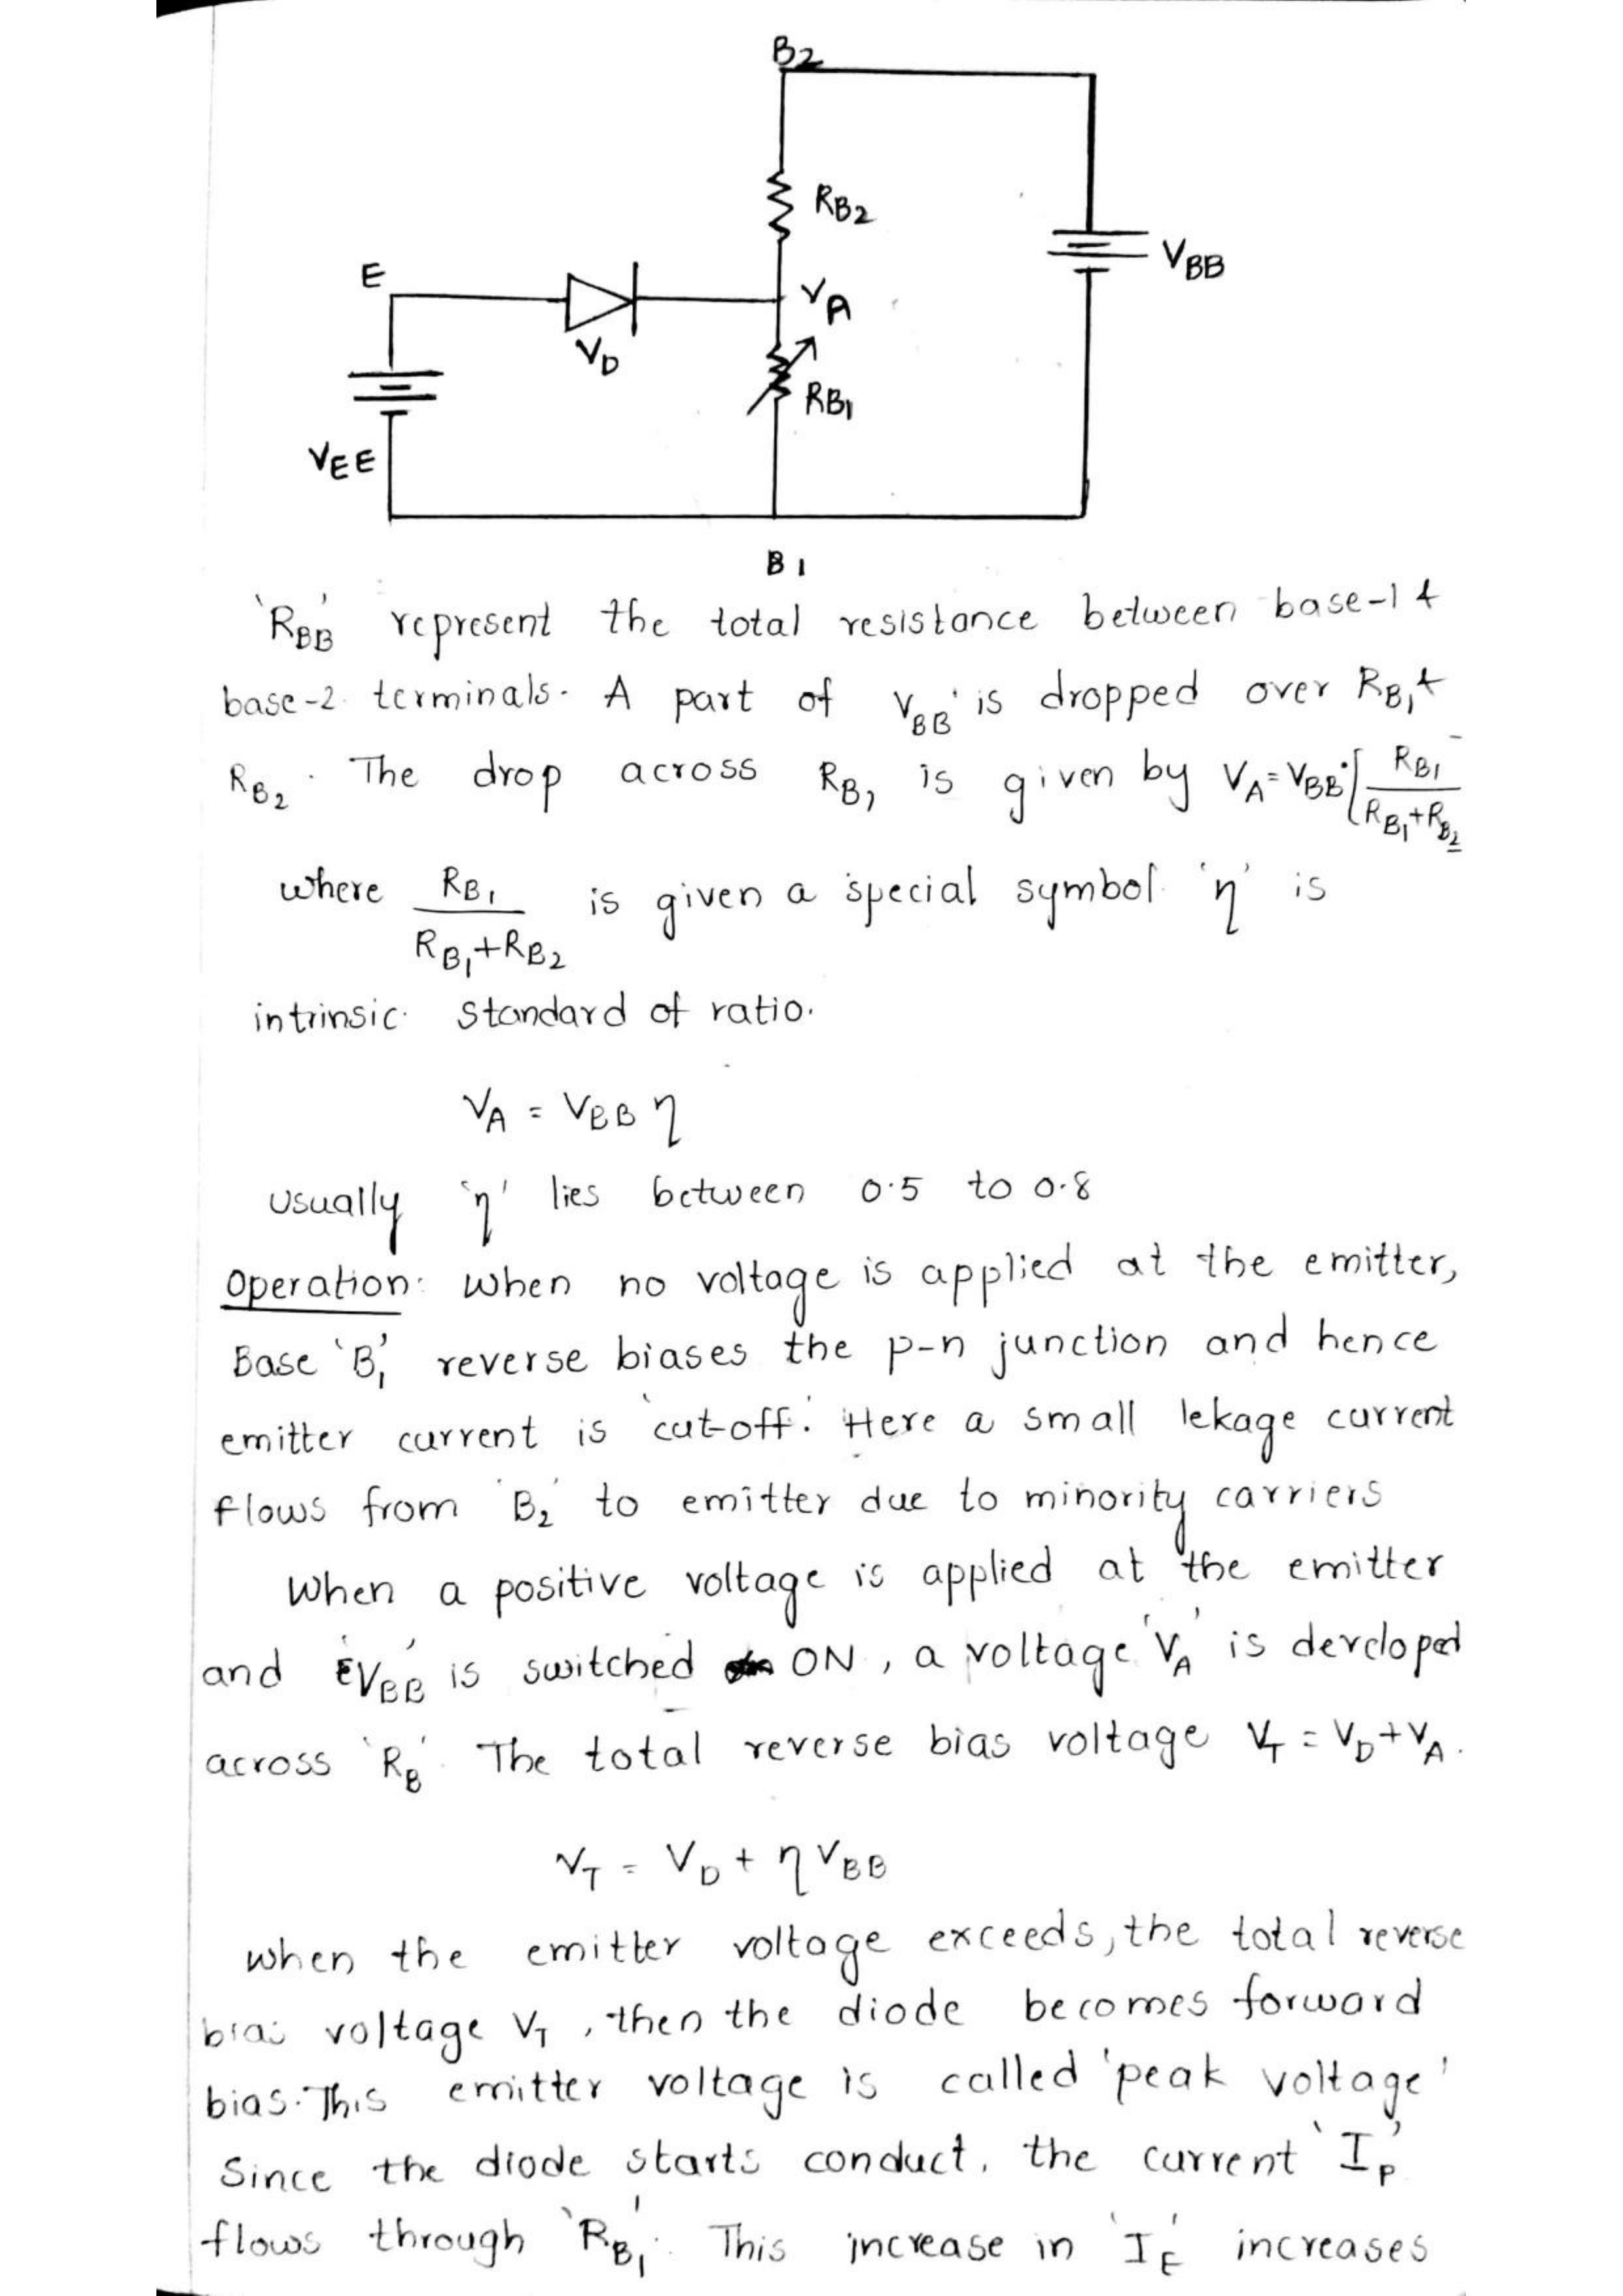 B2
RB2
VBB
E
VA
VD
RB1
VEE
B1
'RBB' represent the total resistance between base-1 &
base-2 terminals. A part of VBB' is dropped over RB1 &
RB2. The drop across RB1 is given by VA = VBB [RB1 / RB1+RB2
where RB1 / RB1+RB2 is given a special symbol 'η' is
intrinsic standard of ratio.
VA = VBB η
Usually 'η' lies between 0.5 to 0.8
Operation: When no voltage is applied at the emitter,
Base 'B1' reverse biases the p-n junction and hence
emitter current is 'cut-off'. Here a small lekage current
flows from 'B2' to emitter due to minority carriers
When a positive voltage is applied at the emitter
and 'VBB' is switched ON, a voltage 'VA' is developed
across 'RB'. The total reverse bias voltage VT = VD + VA.
VT = VD + η VBB
when the emitter voltage exceeds, the total reverse
bias voltage VT, then the diode becomes forward
bias. This emitter voltage is called 'peak voltage'
Since the diode starts conduct, the current 'IP'
flows through 'RB1'. This increase in 'IE' increases